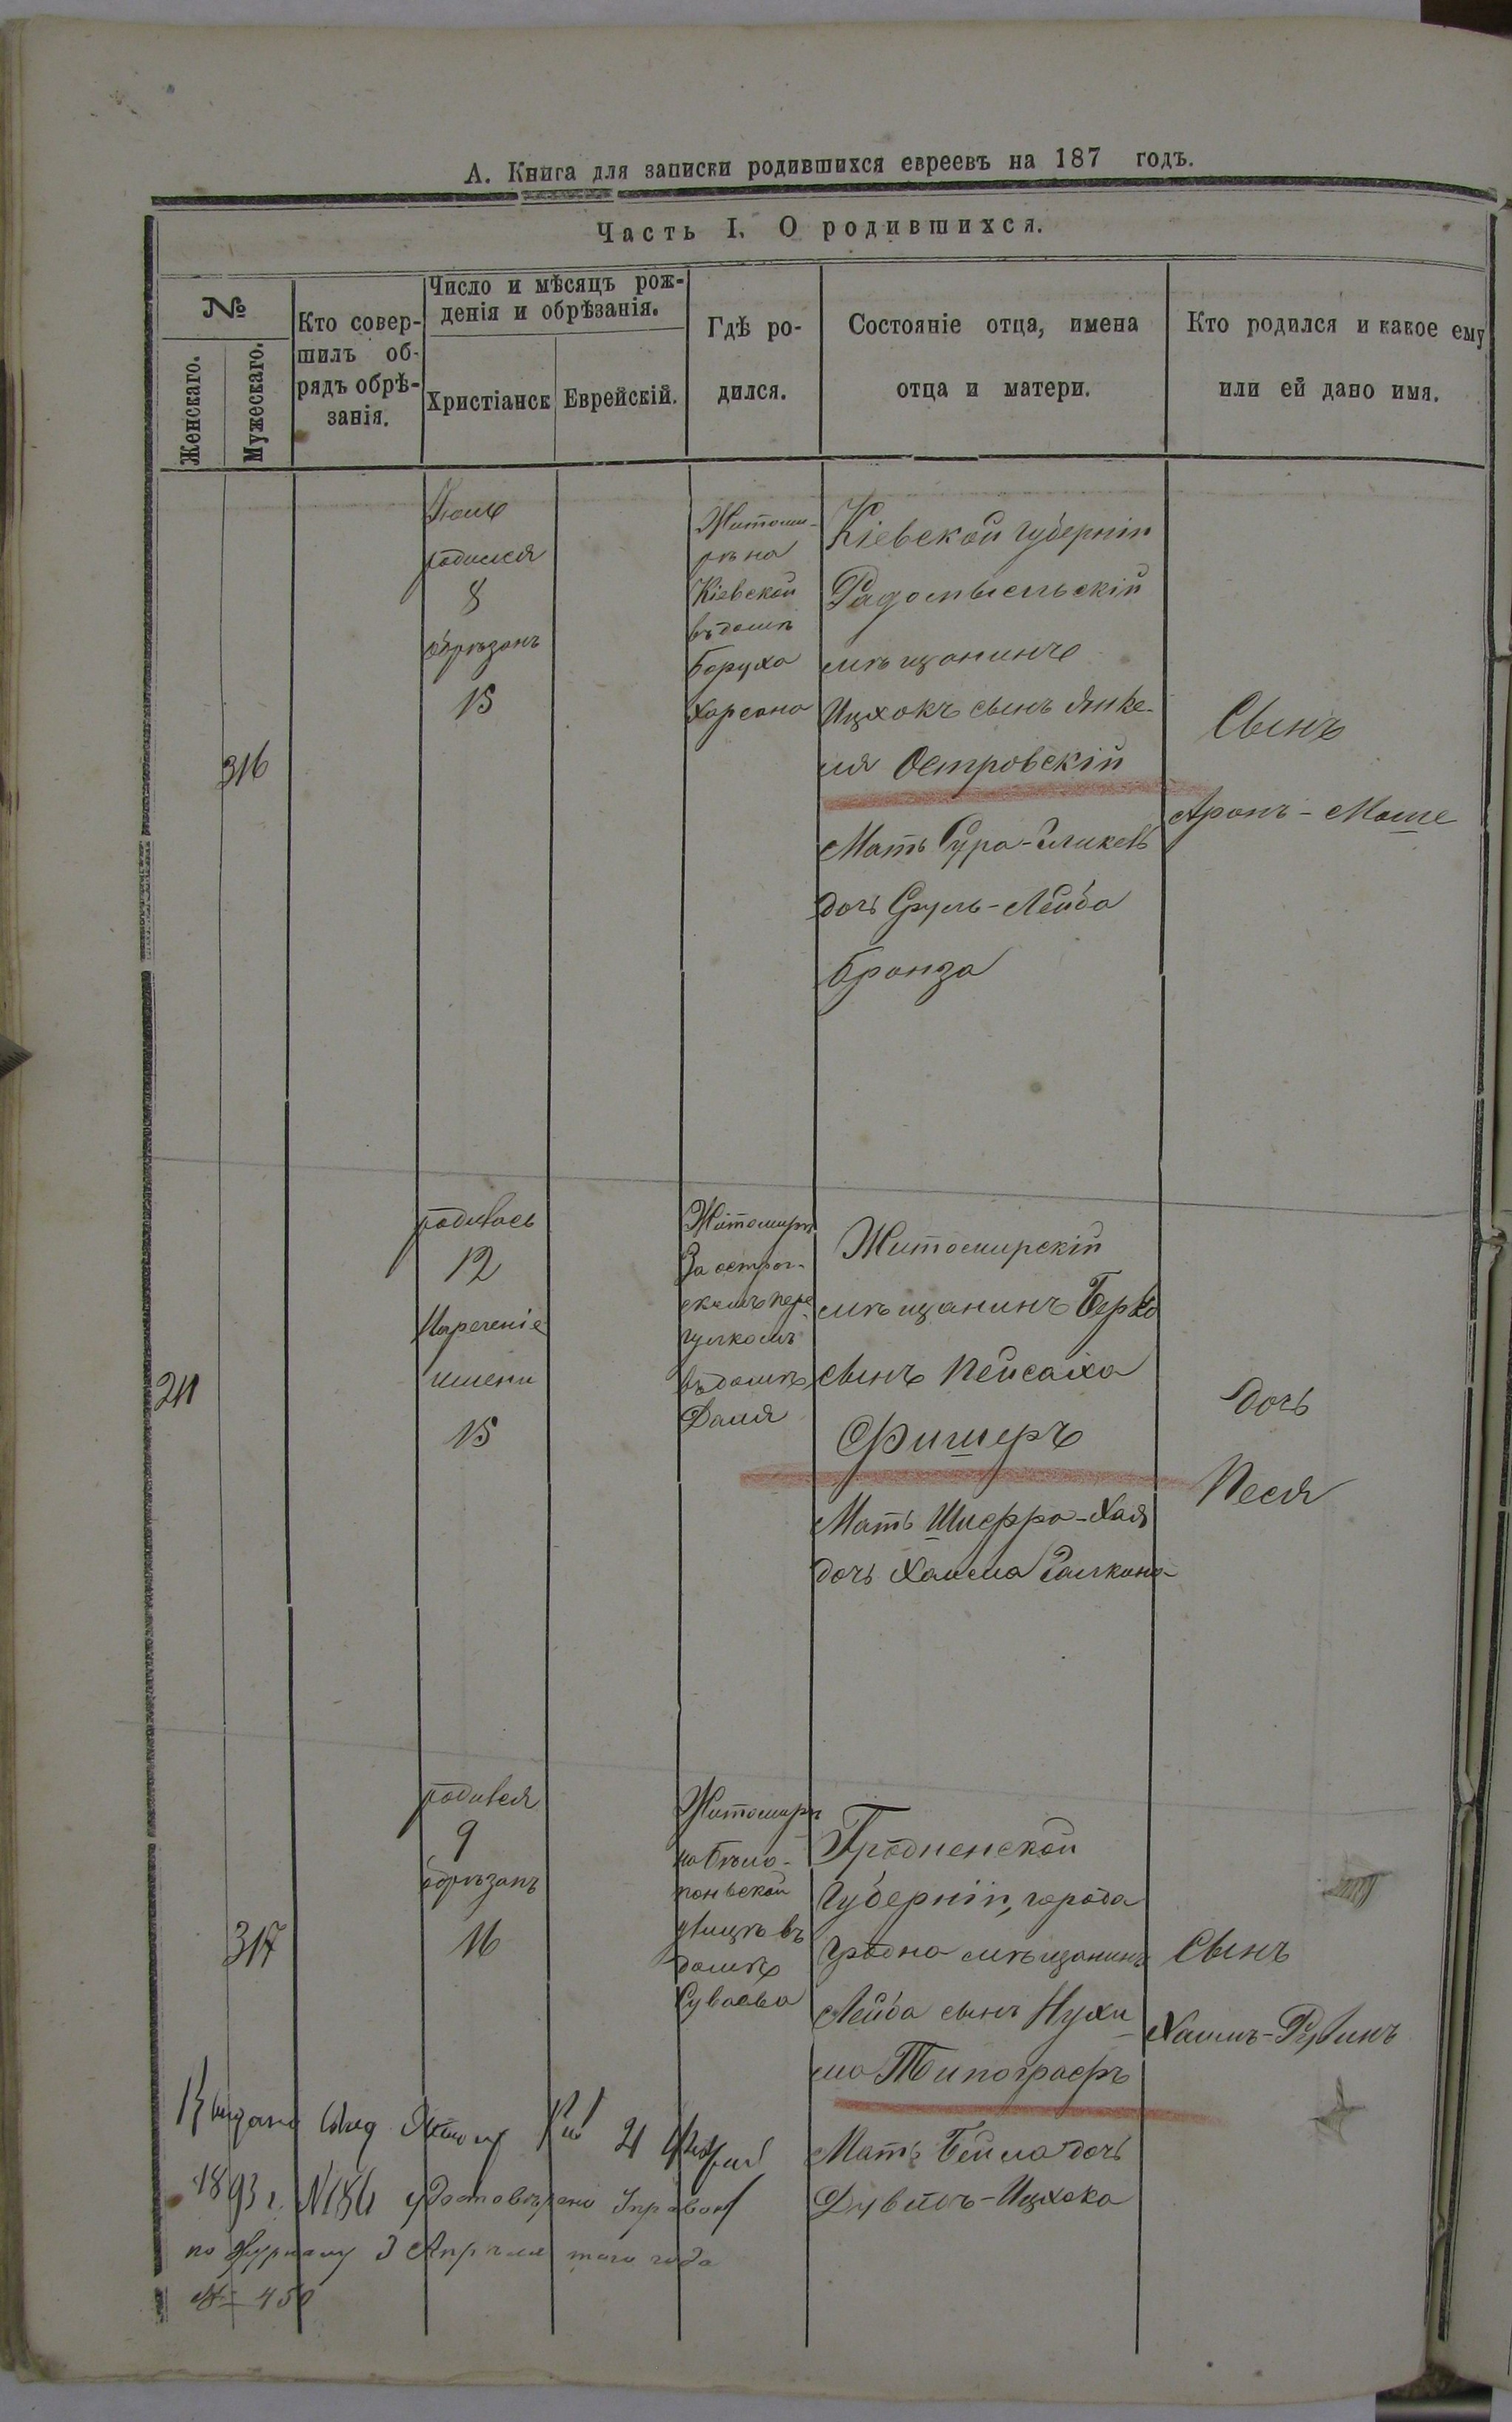 А. Книга для записки родившихся евреевъ на 187 годъ.
Часть I. О родившихся.
№
Женскаго.
Мужескаго.
Кто совер-
шилъ об-
рядъ обрѣ-
занія.
Число и мѣсяцъ рож-
денія и обрѣзанія.
Христіанск
Еврейскій.
Гдѣ ро-
дился.
Состояніе отца, имена
отца и матери.
Кто родился и какое ему
или ей дано имя.
316
родился
8
обрѣзанъ
15
Житоми-
рѣ на
Кіевской
въ домѣ
Боруха
Кіевской губерніи
Радомысльскій
мѣщанинъ
Ицхокъ сынъ Янке-
ля Островскій
Мать Сура-
дочь Сруль-Лейба
Бронза
Сынъ
Аронъ-Моше
211
родилась
12
Нареченіе
имени
15
Житомирѣ
За острог-
скимъ пере
улкомъ
въ домѣ
Житомирскій
мѣщанинъ Берко
сынъ Пейсаха
Фишеръ
Мать Шифра-Хая
дочь Хаима
Дочь
Песя
317
родился
9
обрѣзанъ
16
Житомирѣ
на Бѣло-
польской
улицѣ въ
домѣ
Гродненской
Губерніи, города
Гродна мѣщанинъ
Лейба сынъ Нухи
ма Типографъ
Мать Бейла дочь
Дувидъ-Ицхока
Сынъ
Хаимъ-Рувинъ
Выдано 
1893 г. №186 удостовѣрено Управою
по журналу 3 Апрѣля того года
№ 450